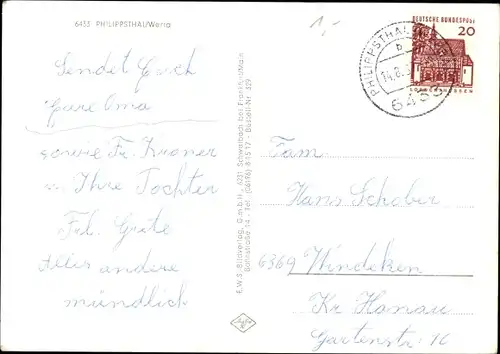 6433 PHILIPPSTHAL/Werra
1,-
Sendet Euch
Eure Oma
sowie Fr. Kroner
u. Ihre Tochter
Frl. Grete
Alles andere
mündlich
E.W.S.-Bildverlag, G.m.b.H., 6231 Schwalbach bei Frankfurt/Main
Bahnstraße 14 - Tel. (06196) 8 15 17 - Bestell-Nr. 329
DEUTSCHE BUNDESPOST
20
LORSCH/HESSEN
PHILIPPSTHAL
b
14.8.
6433
Fam
Hans Schober
6369 Windeken
Kr Hanau
Gartenstr. 16